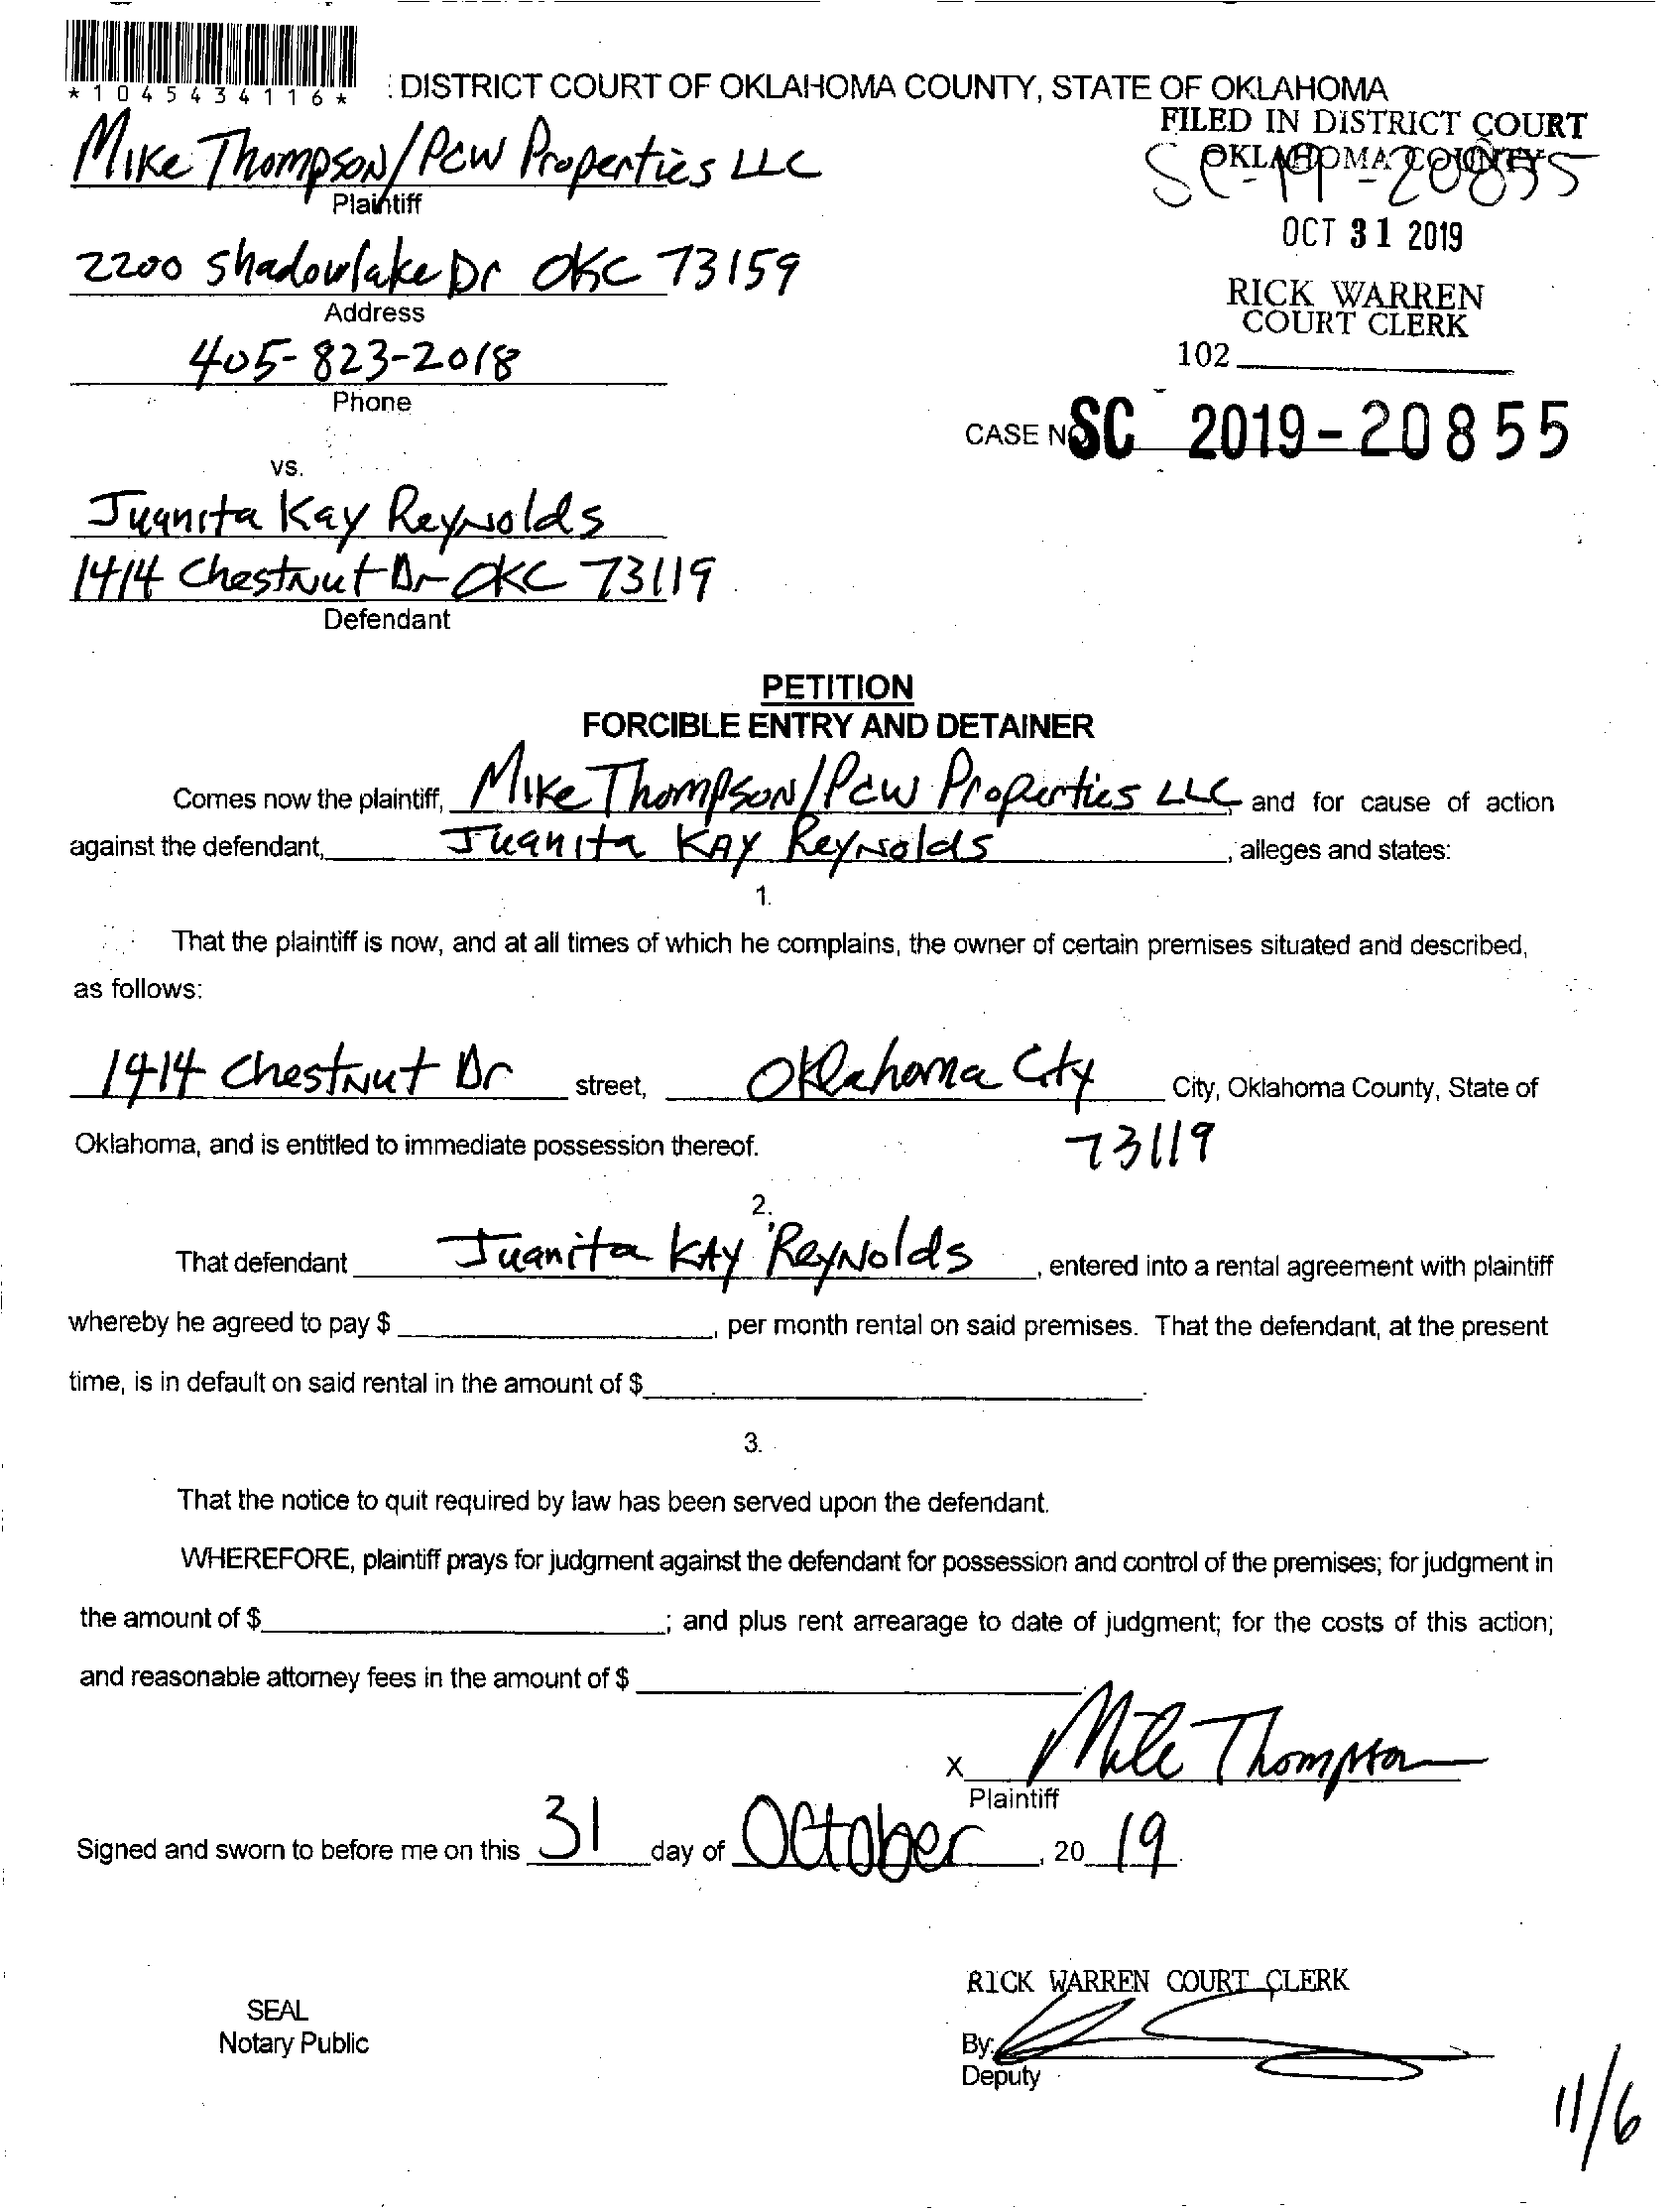 *1045434116*
: DISTRICT COURT OF OKLAHOMA COUNTY, STATE OF OKLAHOMA
FILED IN DISTRICT COURT
OKLAHOMA COUNTY
SC-19-20855
Mike Thompson/PCW Properties LLC
Plaintiff
OCT 31 2019
2200 Shadowlake Dr OKC 73159
Address
RICK WARREN
COURT CLERK
405-823-2018
Phone
102
CASE NO SC 2019-20855
vs.
Juanita Kay Reynolds
1414 Chestnut Dr OKC 73119
Defendant
PETITION
FORCIBLE ENTRY AND DETAINER
Comes now the plaintiff, Mike Thompson/PCW Properties LLC and for cause of action
against the defendant, Juanita KAY Reynolds, alleges and states:
1.
That the plaintiff is now, and at all times of which he complains, the owner of certain premises situated and described,
as follows:
1414 Chestnut Dr street, Oklahoma City City, Oklahoma County, State of
Oklahoma, and is entitled to immediate possession thereof. 73119
2.
That defendant Juanita KAY Reynolds, entered into a rental agreement with plaintiff
whereby he agreed to pay $ , per month rental on said premises. That the defendant, at the present
time, is in default on said rental in the amount of $ .
3.
That the notice to quit required by law has been served upon the defendant.
WHEREFORE, plaintiff prays for judgment against the defendant for possession and control of the premises; for judgment in
the amount of $ ; and plus rent arrearage to date of judgment; for the costs of this action;
and reasonable attorney fees in the amount of $
x Mike Thompson
Plaintiff
Signed and sworn to before me on this 31 day of October, 20 19.
RICK WARREN COURT CLERK
SEAL
Notary Public
By:
Deputy
11/6